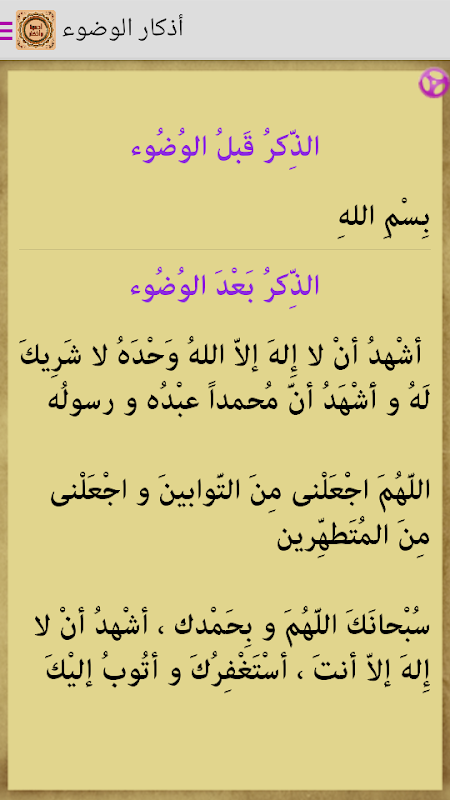 أذكار الوضوء
الذِّكرُ قَبلُ الوُضُوء
بِسْمِ اللهِ
الذِّكرُ بَعْدَ الوُضُوء
أشْهدُ أنْ لا إِلهَ إلاّ اللهُ وَحْدَهُ لا شَرِيكَ
لَهُ و أشْهَدُ أنّ مُحمداً عبْدُه و رسولُه
اللّهُمَ اجْعَلْنى مِنَ التّوابينَ و اجْعَلْنى
مِنَ المُتَطهِّرين
سُبْحانَكَ اللّهُمَ و بِحَمْدك ، أشْهدُ أنْ لا
إِلهَ إلاّ أنتَ ، أسْتَغْفِرُكَ و أتُوبُ إليْكَ